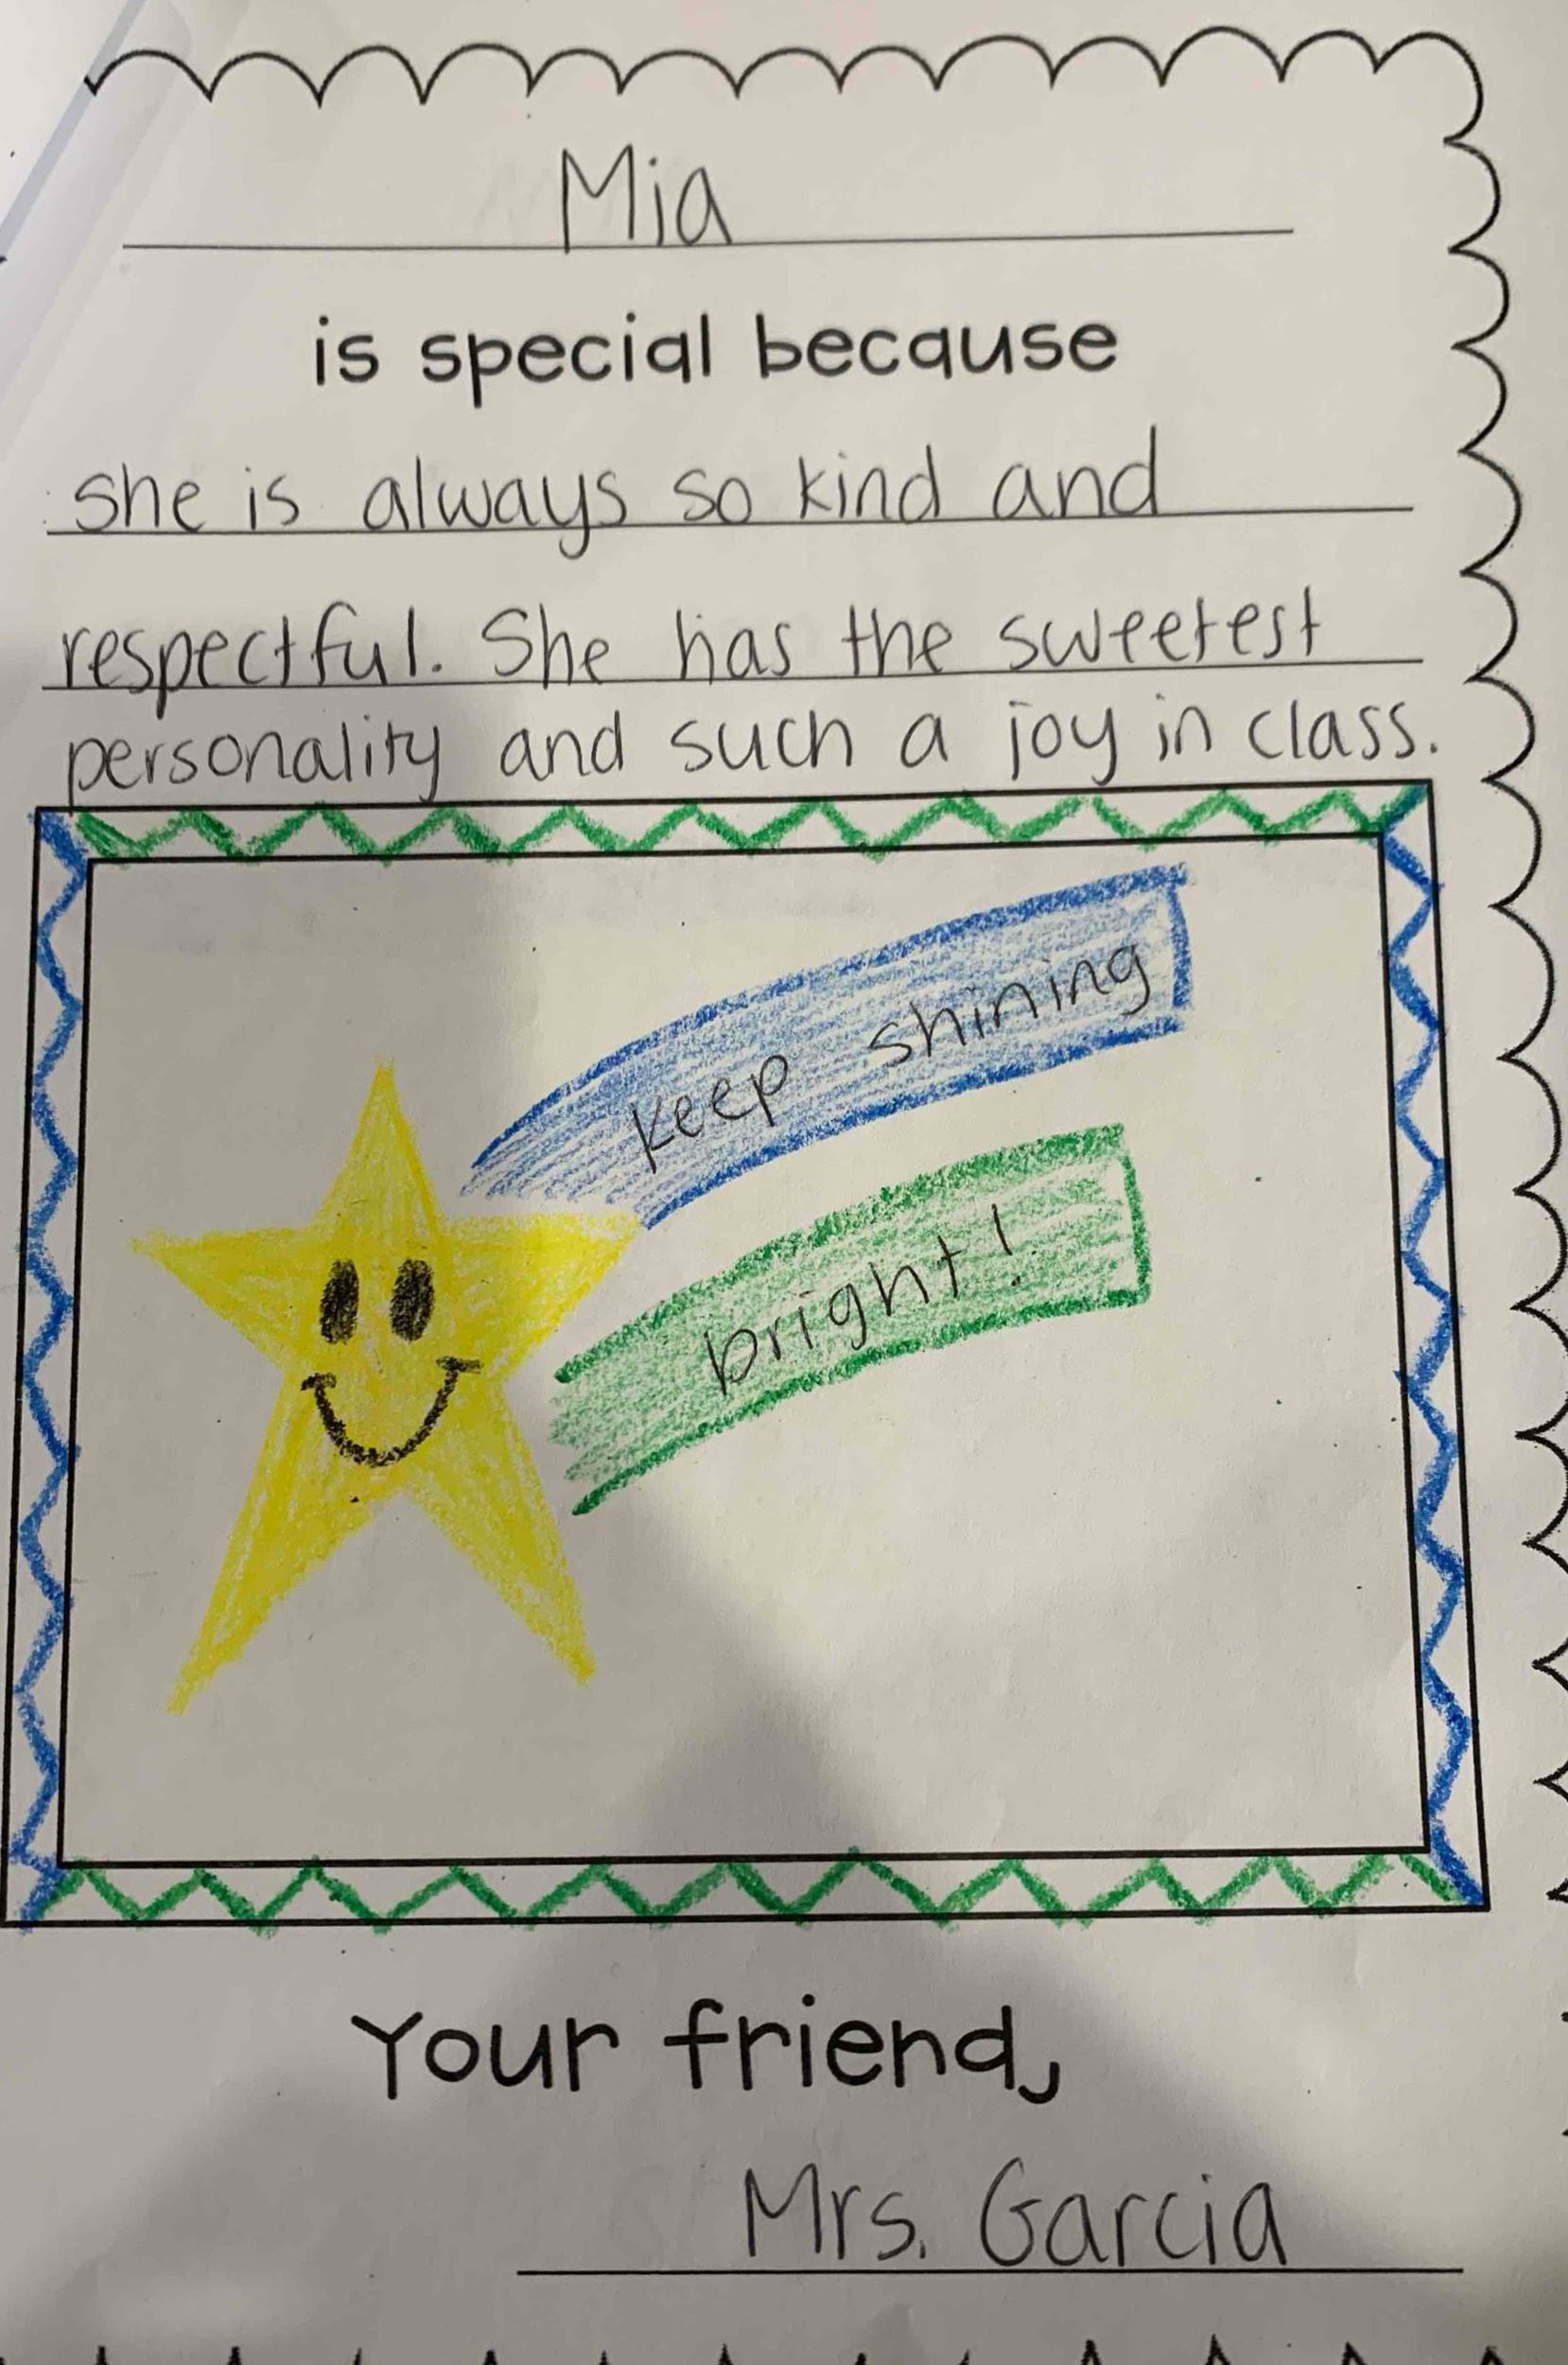 Mia
is special because
she is always so kind and
respectful. She has the sweetest
personality and such a joy in class.
Keep shining
bright!
Your friend,
Mrs. Garcia